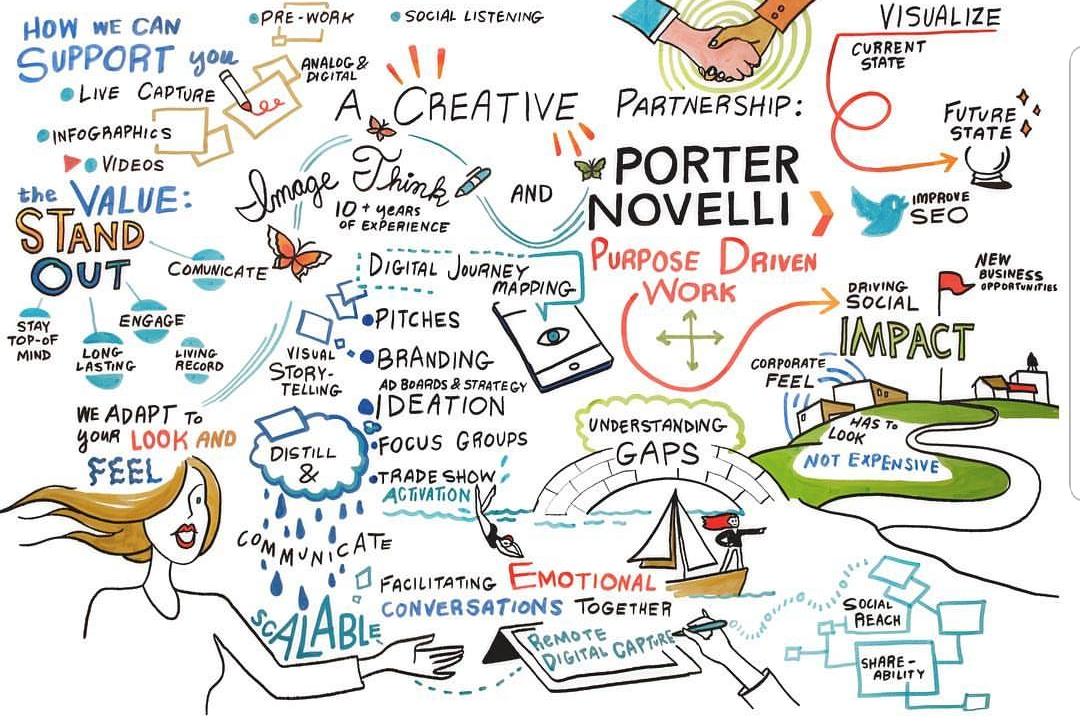 HOW WE CAN
SUPPORT you
PRE-WORK
SOCIAL LISTENING
ANALOG &
DIGITAL
LIVE CAPTURE
INFOGRAPHICS
VIDEOS
A CREATIVE PARTNERSHIP:
Image Think
10+ YEARS
OF EXPERIENCE
AND
PORTER
NOVELLI
PURPOSE DRIVEN
WORK
VISUALIZE
CURRENT
STATE
FUTURE
STATE
IMPROVE
SEO
the VALUE:
STAND
OUT
COMUNICATE
STAY
TOP-OF
MIND
LONG
LASTING
ENGAGE
LIVING
RECORD
DIGITAL JOURNEY
MAPPING
PITCHES
BRANDING
AD BOARDS & STRATEGY
IDEATION
FOCUS GROUPS
TRADE SHOW
ACTIVATION
VISUAL
STORY-
TELLING
DISTILL
&
COMMUNICATE
SCALABLE
WE ADAPT TO
YOUR LOOK AND
FEEL
DRIVING
SOCIAL
IMPACT
NEW
BUSINESS
OPPORTUNITIES
CORPORATE
FEEL
HAS TO
LOOK
NOT EXPENSIVE
UNDERSTANDING
GAPS
FACILITATING EMOTIONAL
CONVERSATIONS TOGETHER
REMOTE
DIGITAL CAPTURE
SOCIAL
REACH
SHARE-
ABILITY